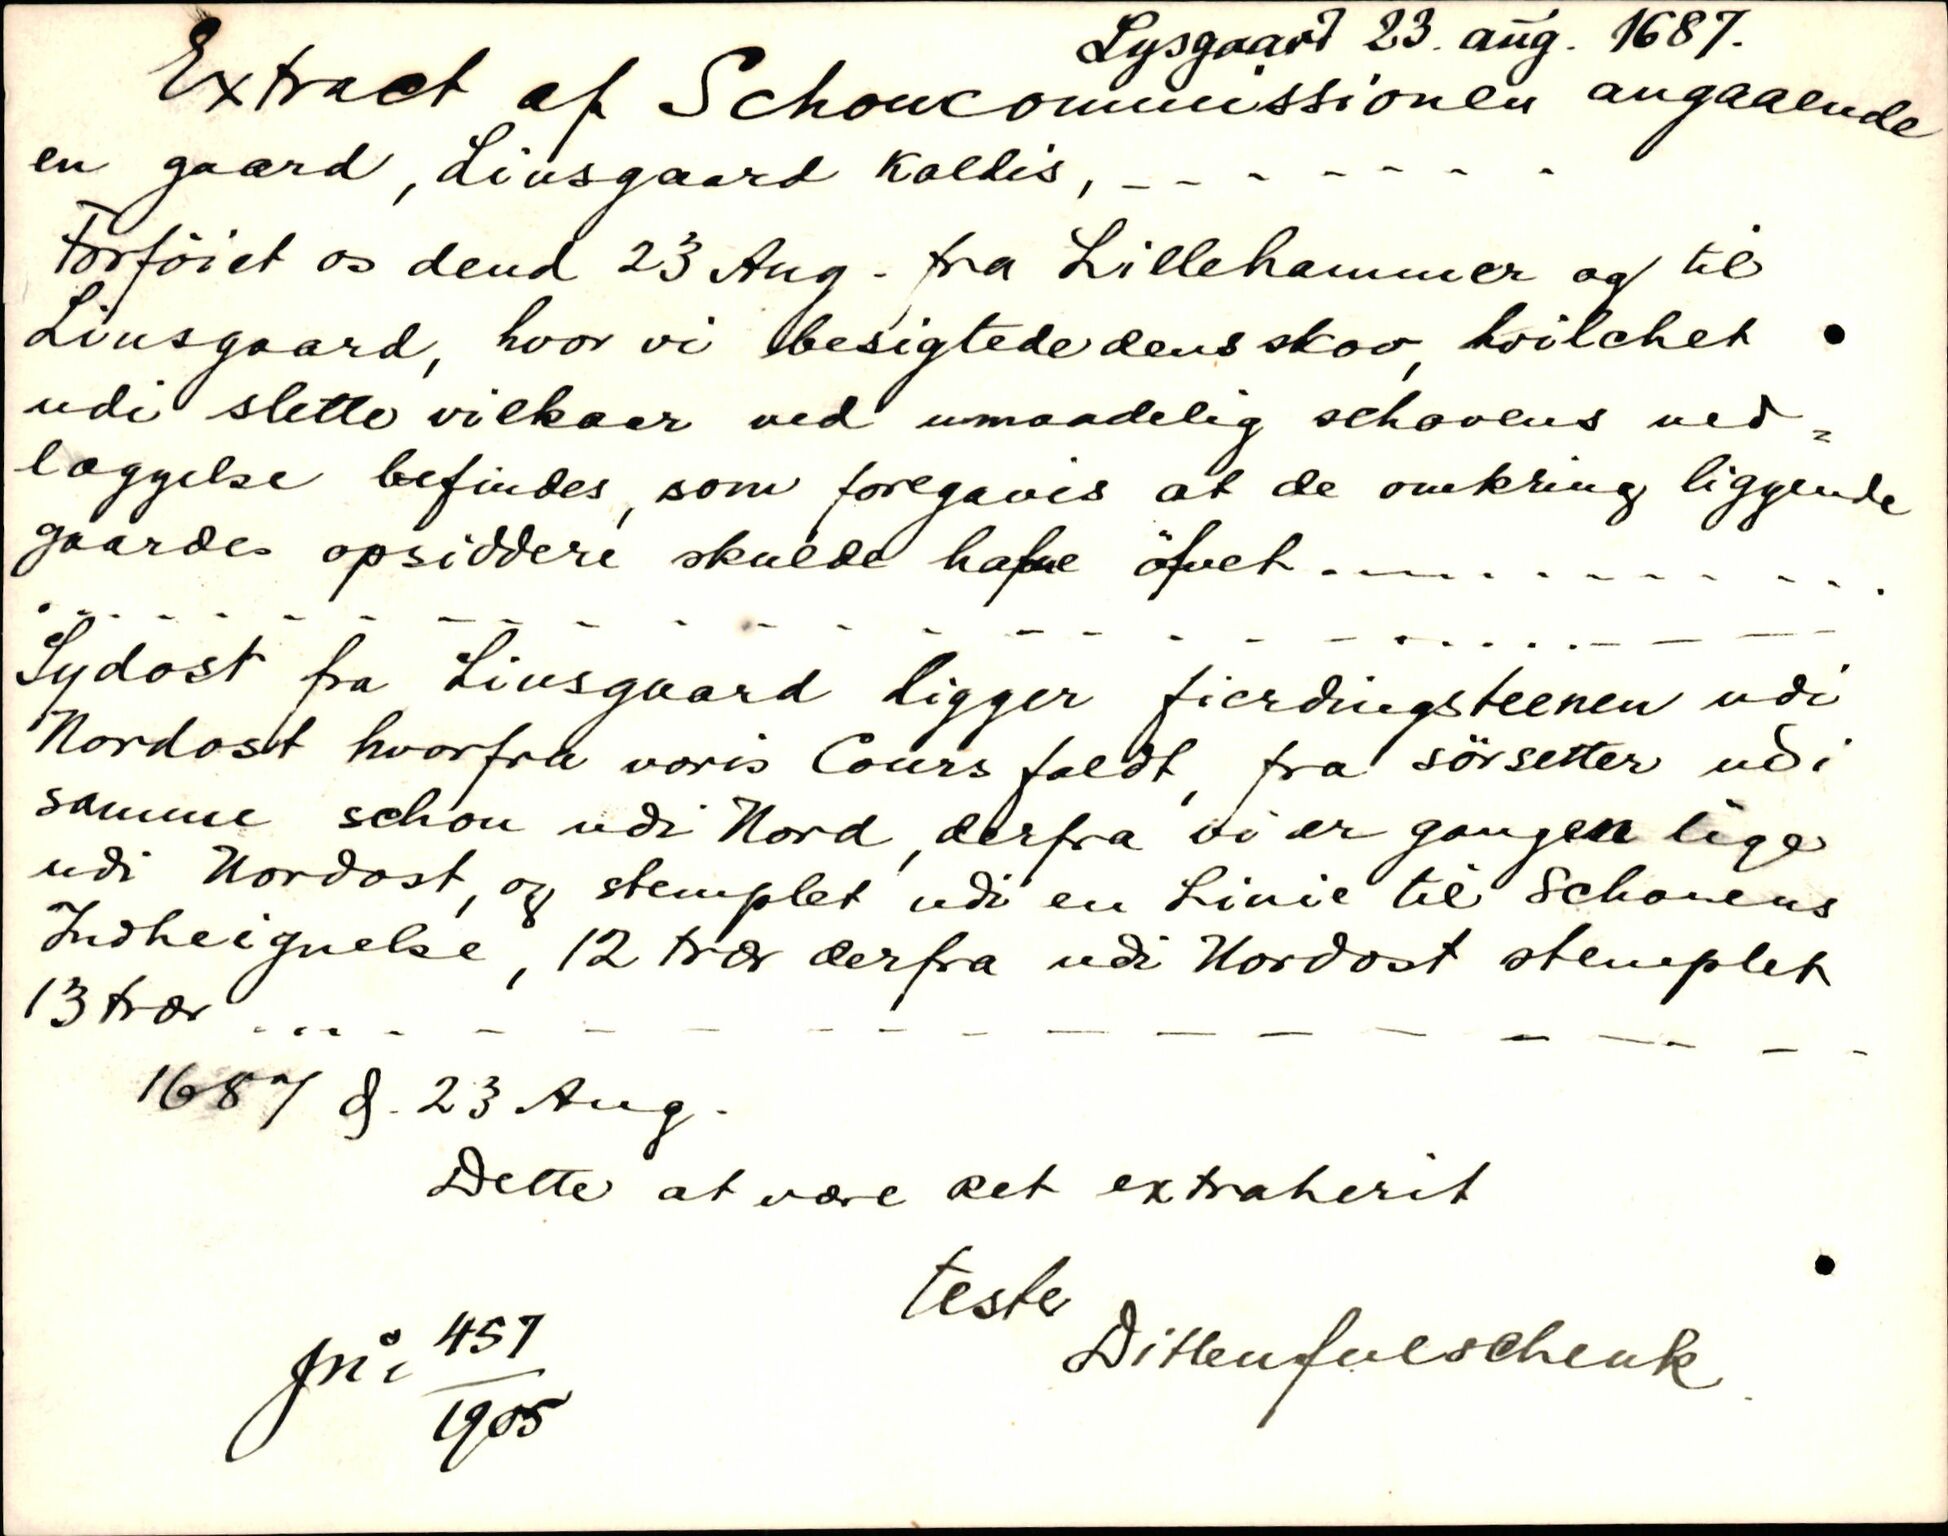 Lysgaard 23. aug. 1687.
Extract af Schoucommissionen angaaende
en gaard, Liusgaard kaldis, - - - - - - -
Forföiet os dend 23 Aug. fra Lillehammer og til
Liusgaard, hvor vi besigtede dens skov, hvilchet
udi slette vilkaar ved umaadelig schovens ned=
læggelse befindes, som foregavis at de omkring liggende
gaardes opsiddere skulde hafve öfvet - - - - - - - - - -
- - - - - - - - - - - - - - - - - - - - - -
Sydost fra Liusgaard ligger fierdingsteenen udi
Nordost hvorfra voris Cours faldt, fra sörsetter udi
samme schou udi Nord, derfra vi er gangen lige
udi Nordost, og stemplet udi en Linie til Schouens
Indheignelse, 12 trær derfra udi Nordost stemplet
13 trær - - - - - - - - - - - - - - - - -
1687 d. 23 Aug.
Dette at være ret extraherit
teste
Dittenfuelschenk
457
1905